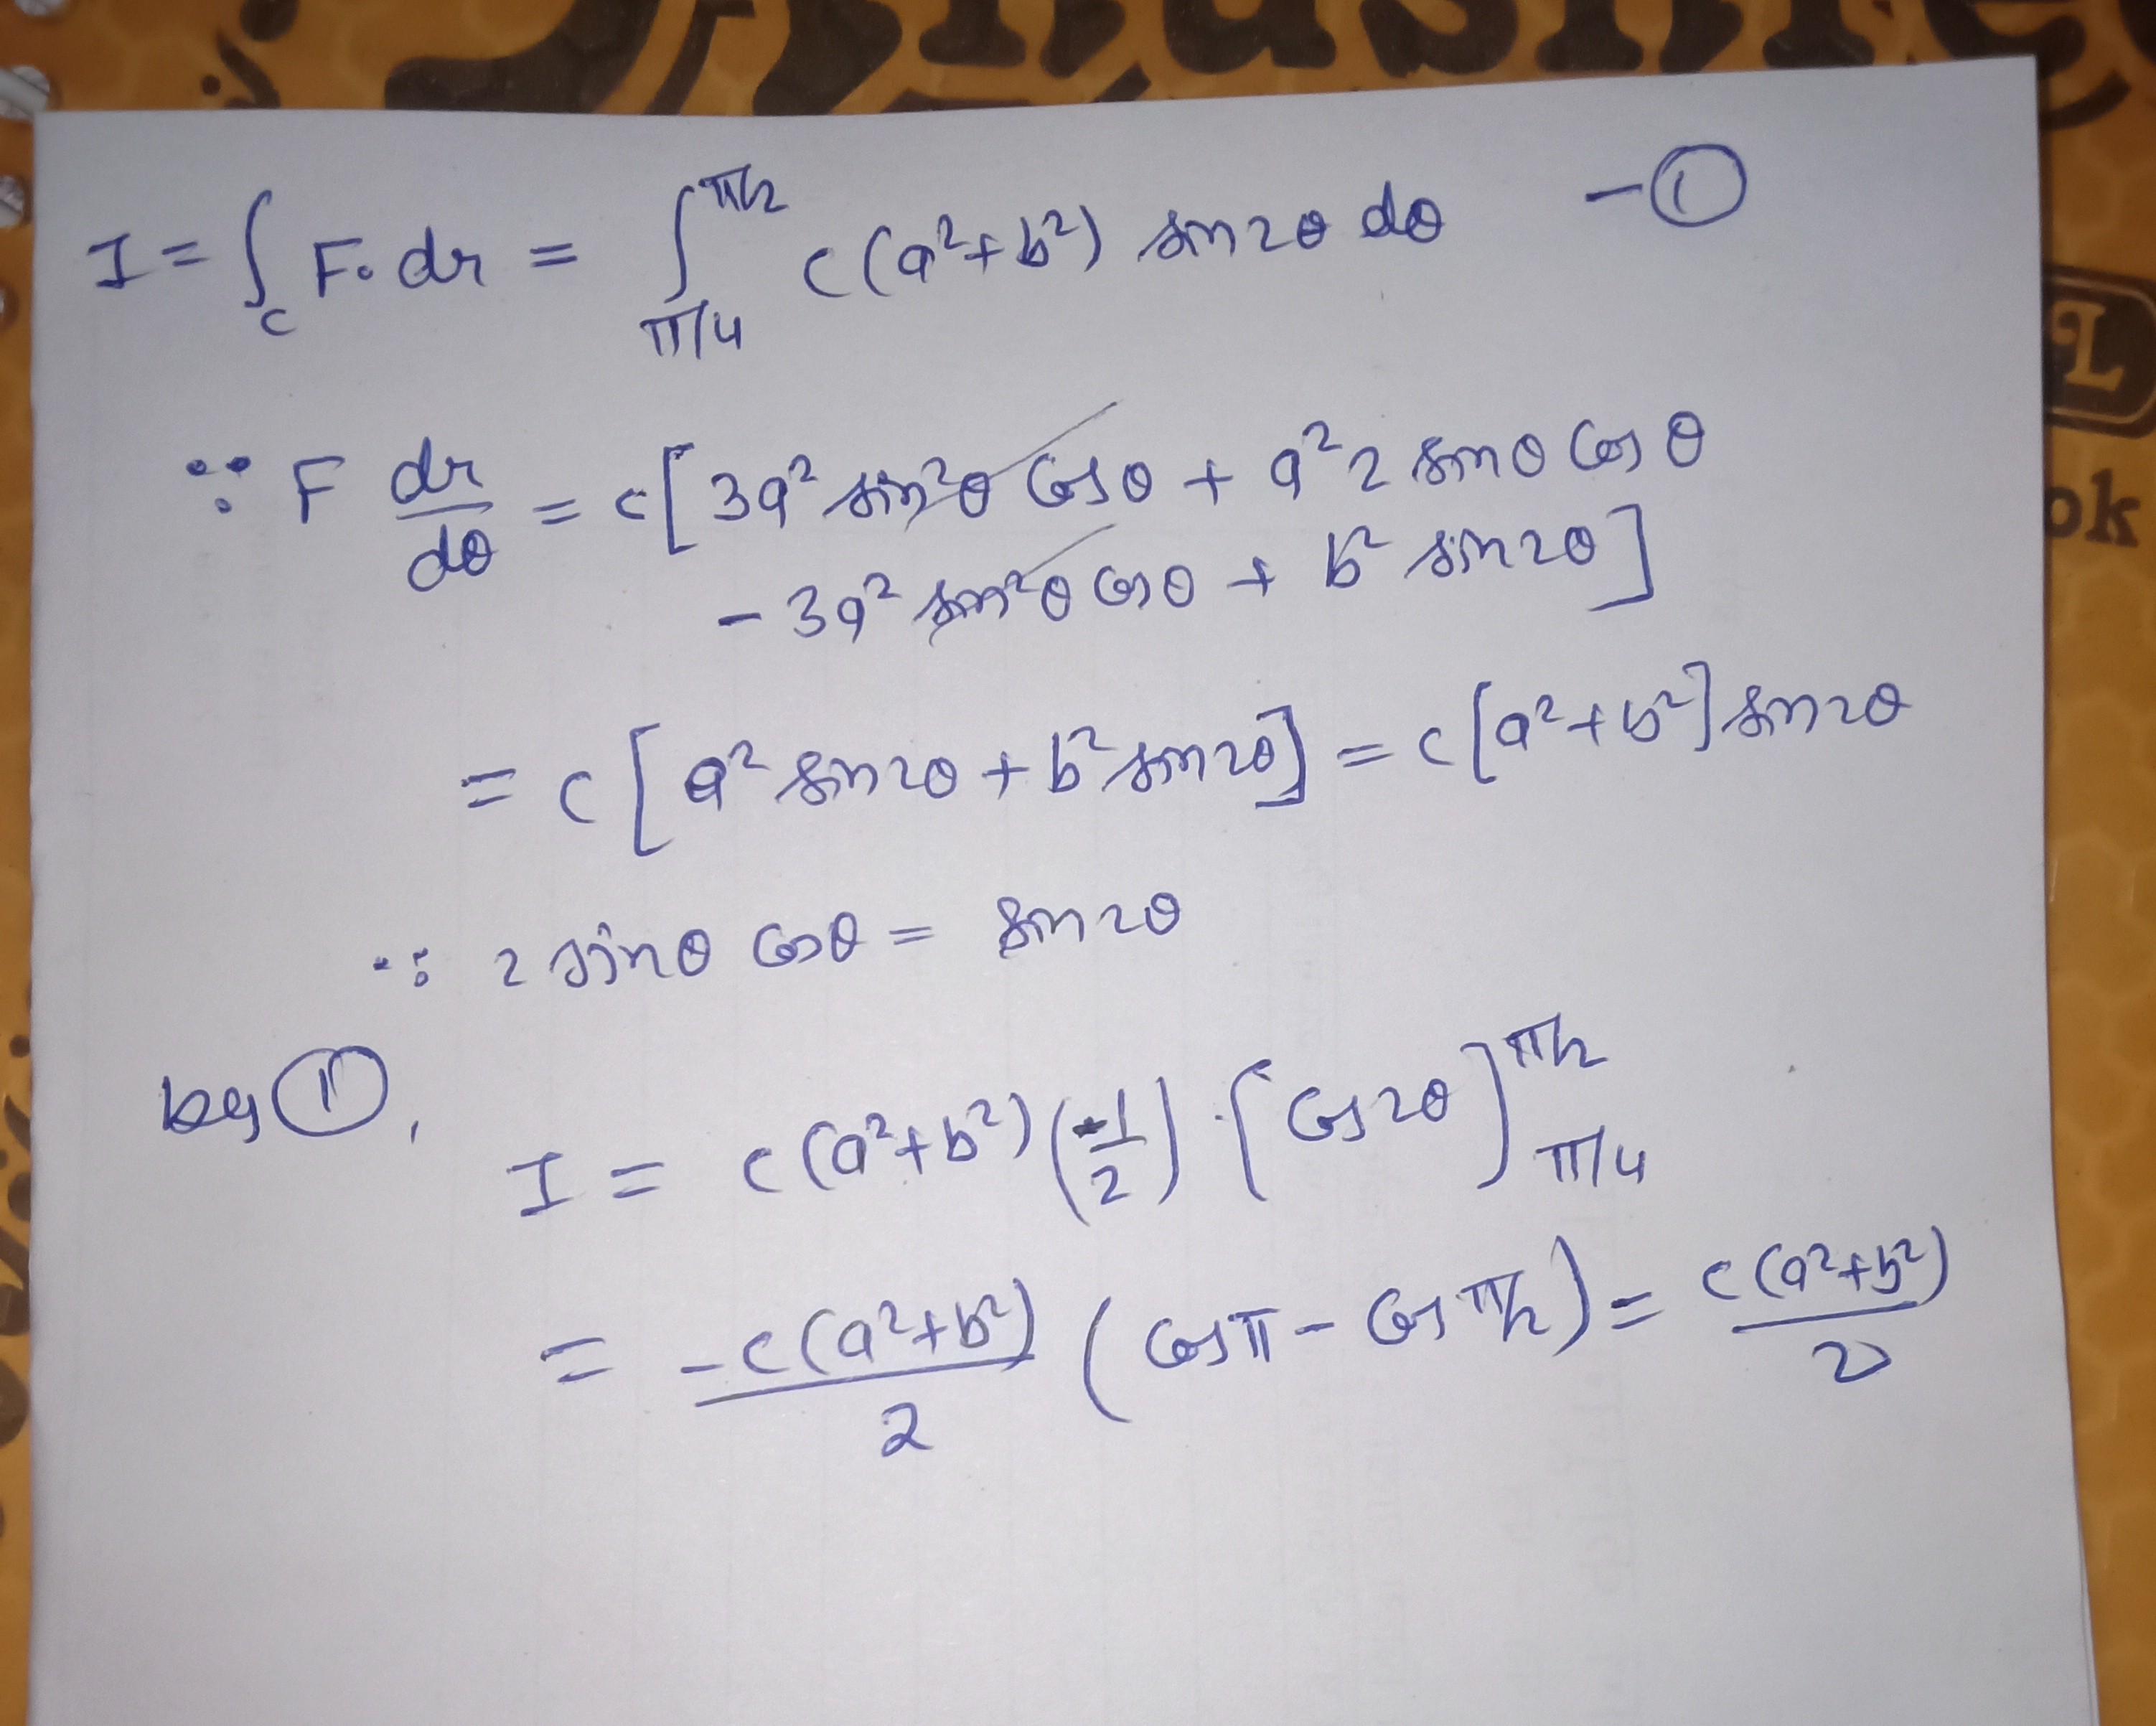 I = ∫_C F. dr = ∫_{π/4}^{π/2} c(a²+b²) sin2θ dθ - ①
∵ F dr/dθ = c[3a² sin²θ Cosθ + a² 2 sinθ Cosθ
- 3a² sin²θ Cosθ + b² sin2θ]
= c[a² sin2θ + b² sin2θ] = c[a²+b²] sin2θ
∵ 2 sinθ Cosθ = sin2θ
by ①,
I = c(a²+b²)(-1/2) [Cos2θ]_{π/4}^{π/2}
= -c(a²+b²)/2 (Cosπ - Cosπ/2) = c(a²+b²)/2
L
ok